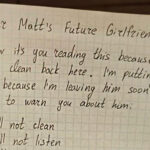 r Matt's Future Girlfrien
w its you reading this because
clean back here. I'm puttin
because I'm leaving him soon
to warn you about him.
ll not clean
ll not listen